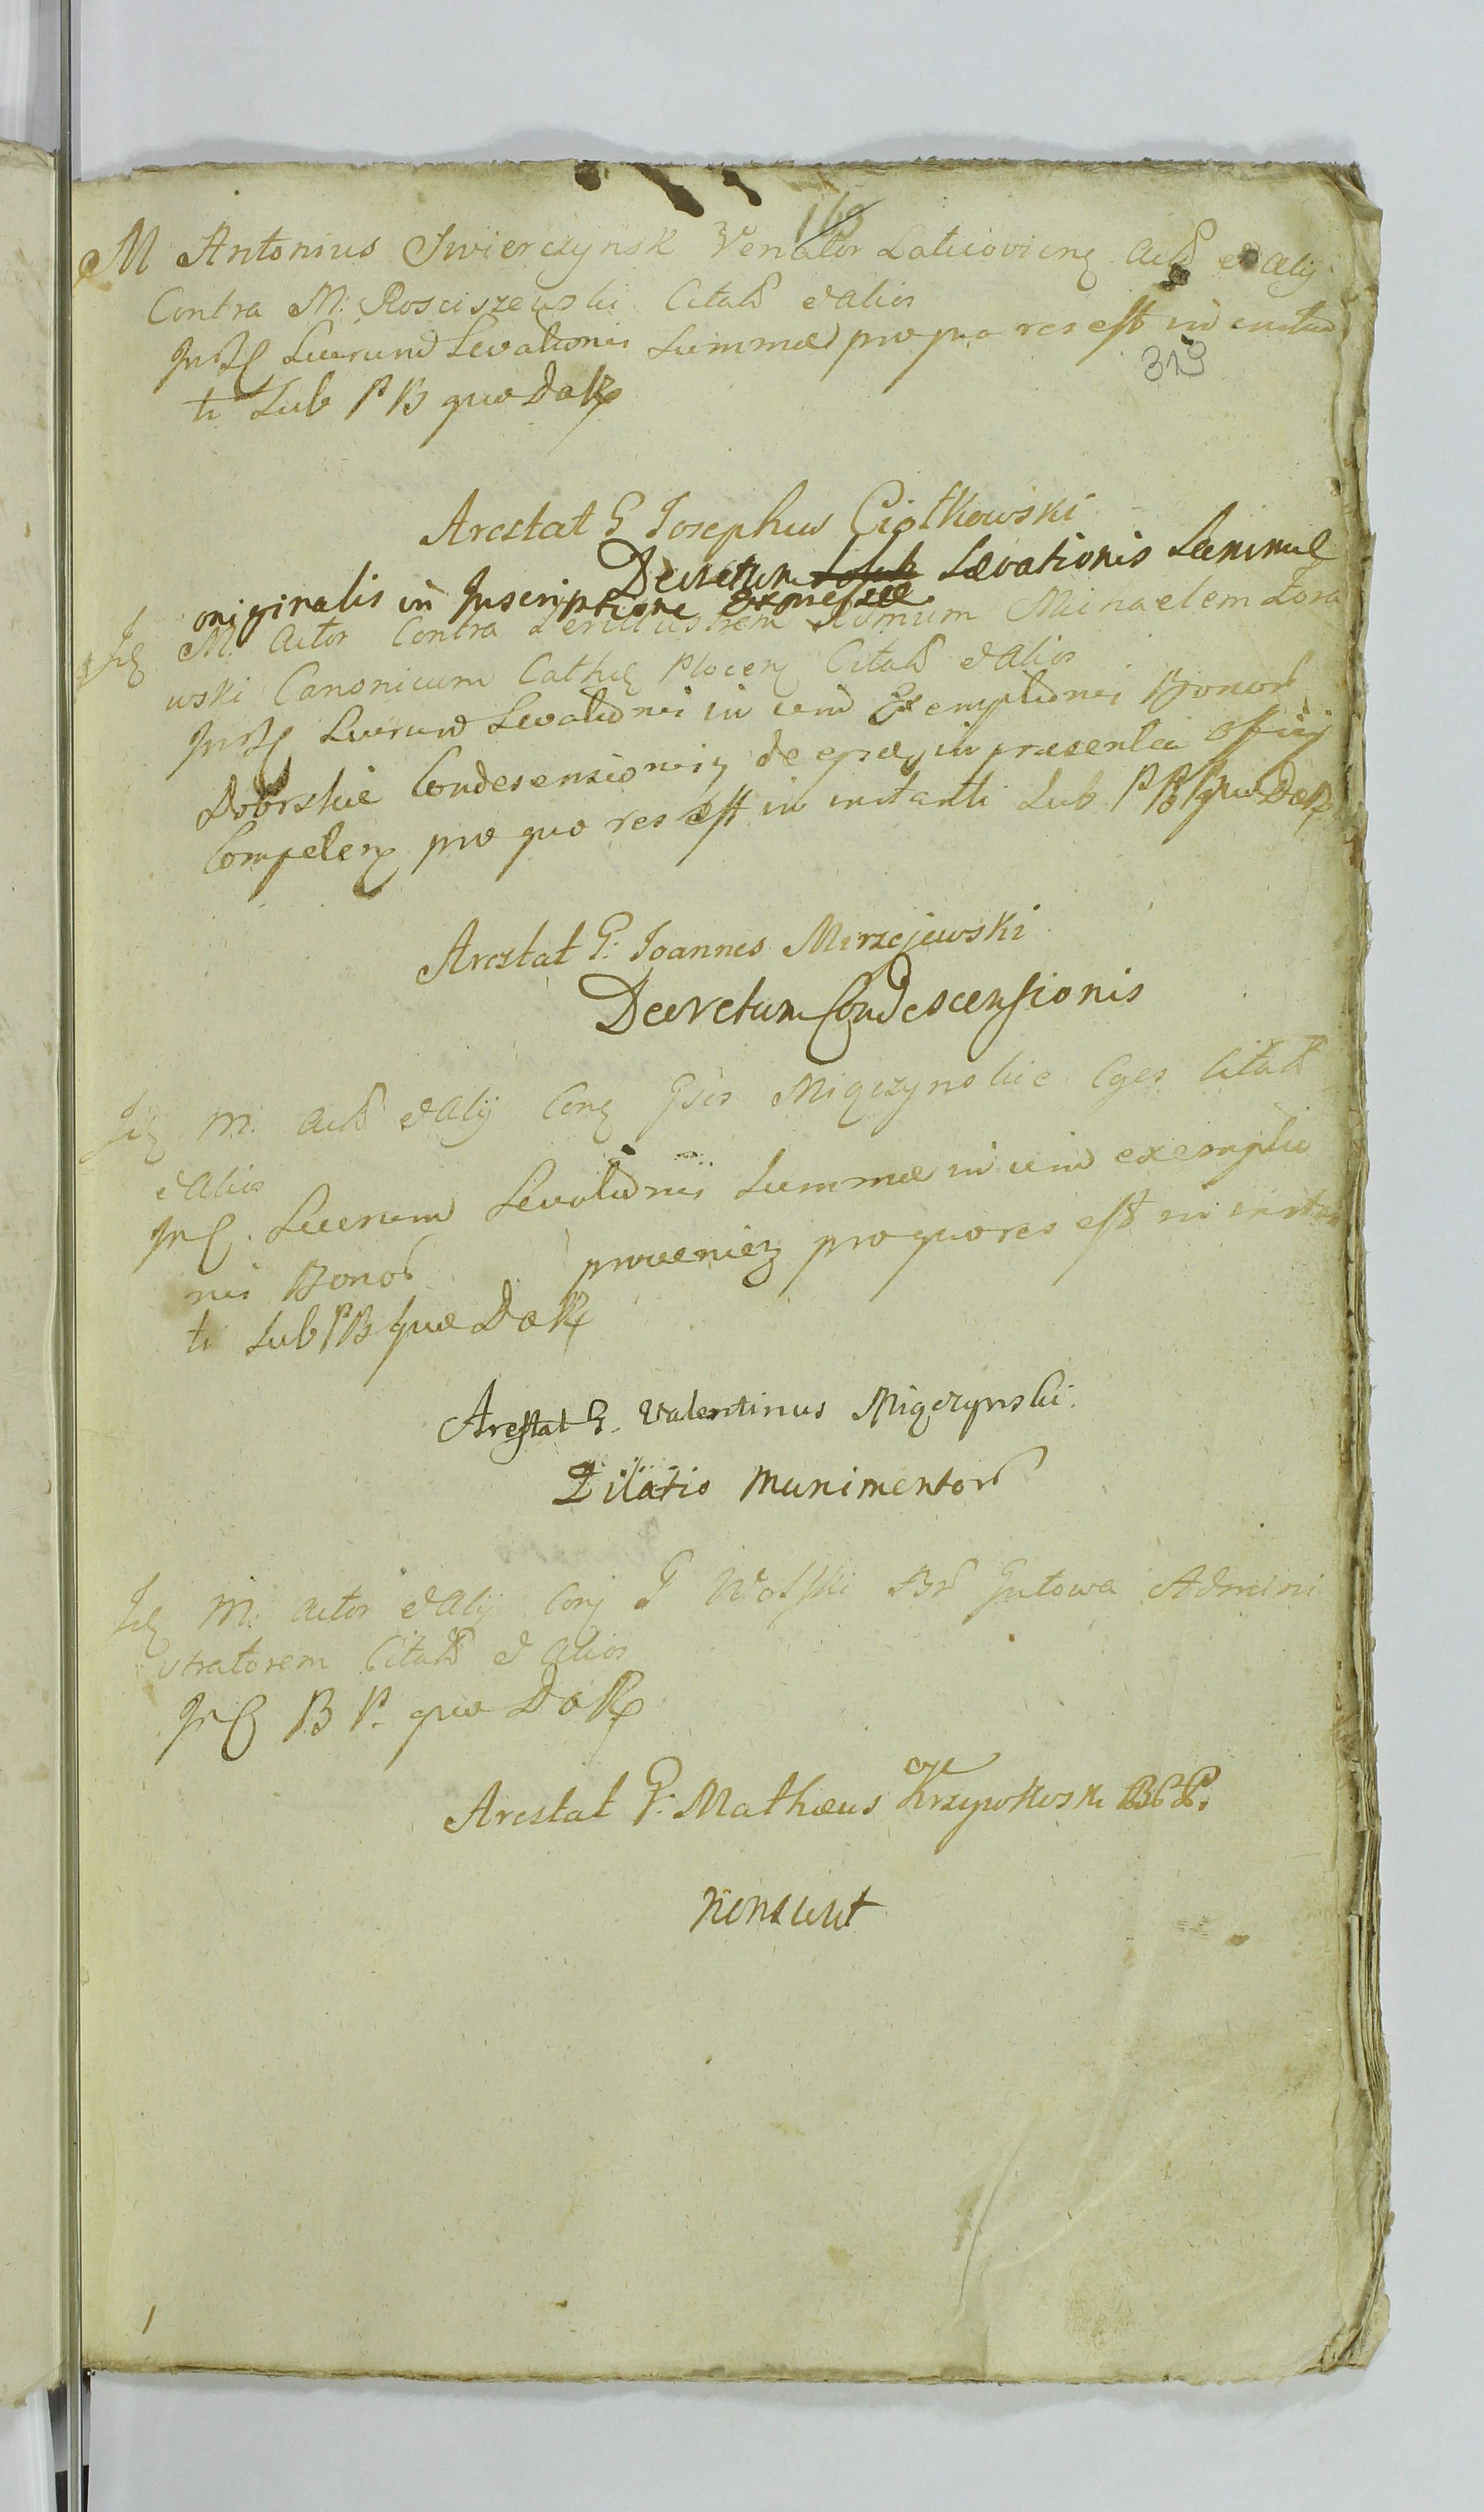 163
M Antonius Swierczynsk Venator Laticovien Act et Alij
Contra M: Rosciszewski Citat et alios
Lucrand Levationis Summae pro qua res est in instan
319
ti Sub PB qua DaR
Arestat G Josephus Ciolkowski
Decretum Levationis Summae
originalis in Inscriptione Expressae
M. Actor Contra Perillustrem Admum Michaelem Zora
wski Canonicum Cathe Plocen Citat et Alios
Lucrand Levationis in vim Exemptionis Bonor
Dobrskie Condesensionis in praesentia officij
Competen pro quo res est in instanti Sub PB qua DaR
Arestat G: Joannes Mirzejewski
Decretum Condescensionis
M: Act et Alij Con Gsos Miączynskie Cges Citat
et Alios
Lucrand Levationis Summae in vim exemptio
nis Bonor provenien pro qua res est in instan
ti Sub PB qua DaR
Arestat G. Valentinus Miączynski.
Dilatio Munimentor
M: Actor et Alij Con G Wolski Br Gutowa Admini
stratorem Citat et Alios
B P. qua DaR
Arestat G: Mathaeus Krzywkosk BCP.
non sunt